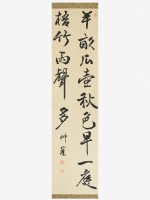 半畝瓜壺秋色早一庭
梧竹雨聲多